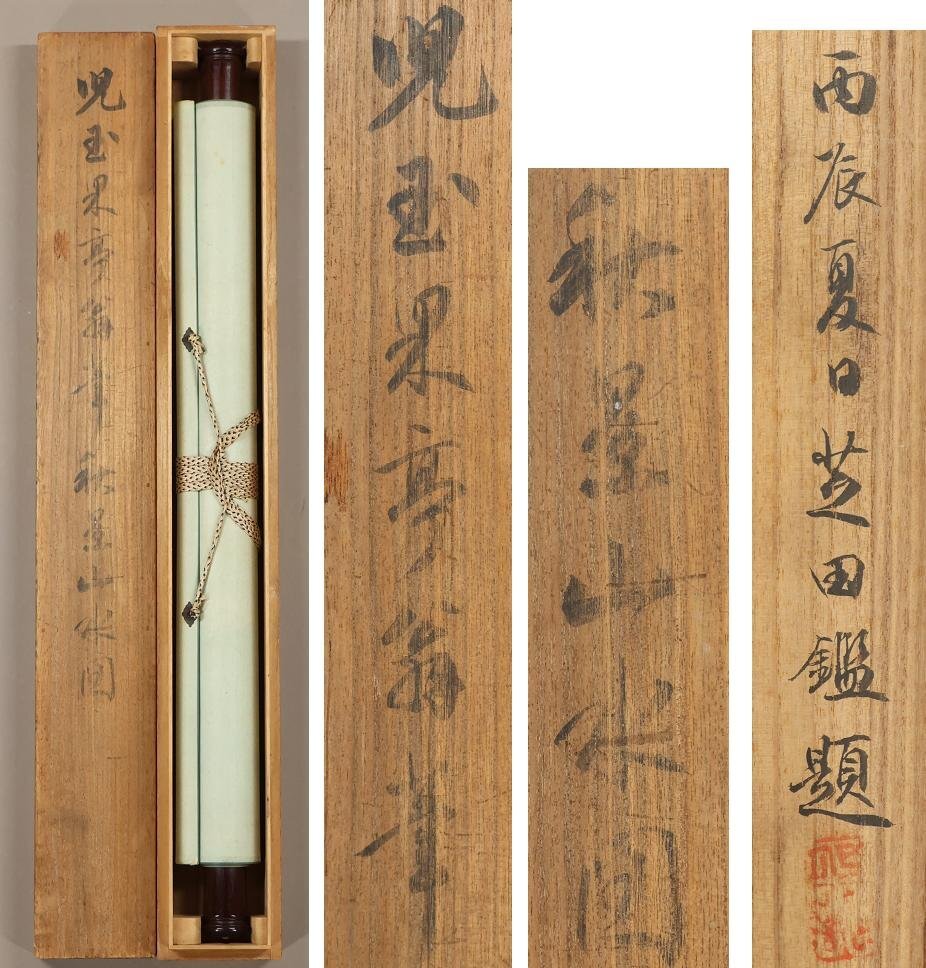 児玉果亭翁筆秋景山水図
児玉果亭翁筆
秋景山水図
丙辰夏日芝田鑑題